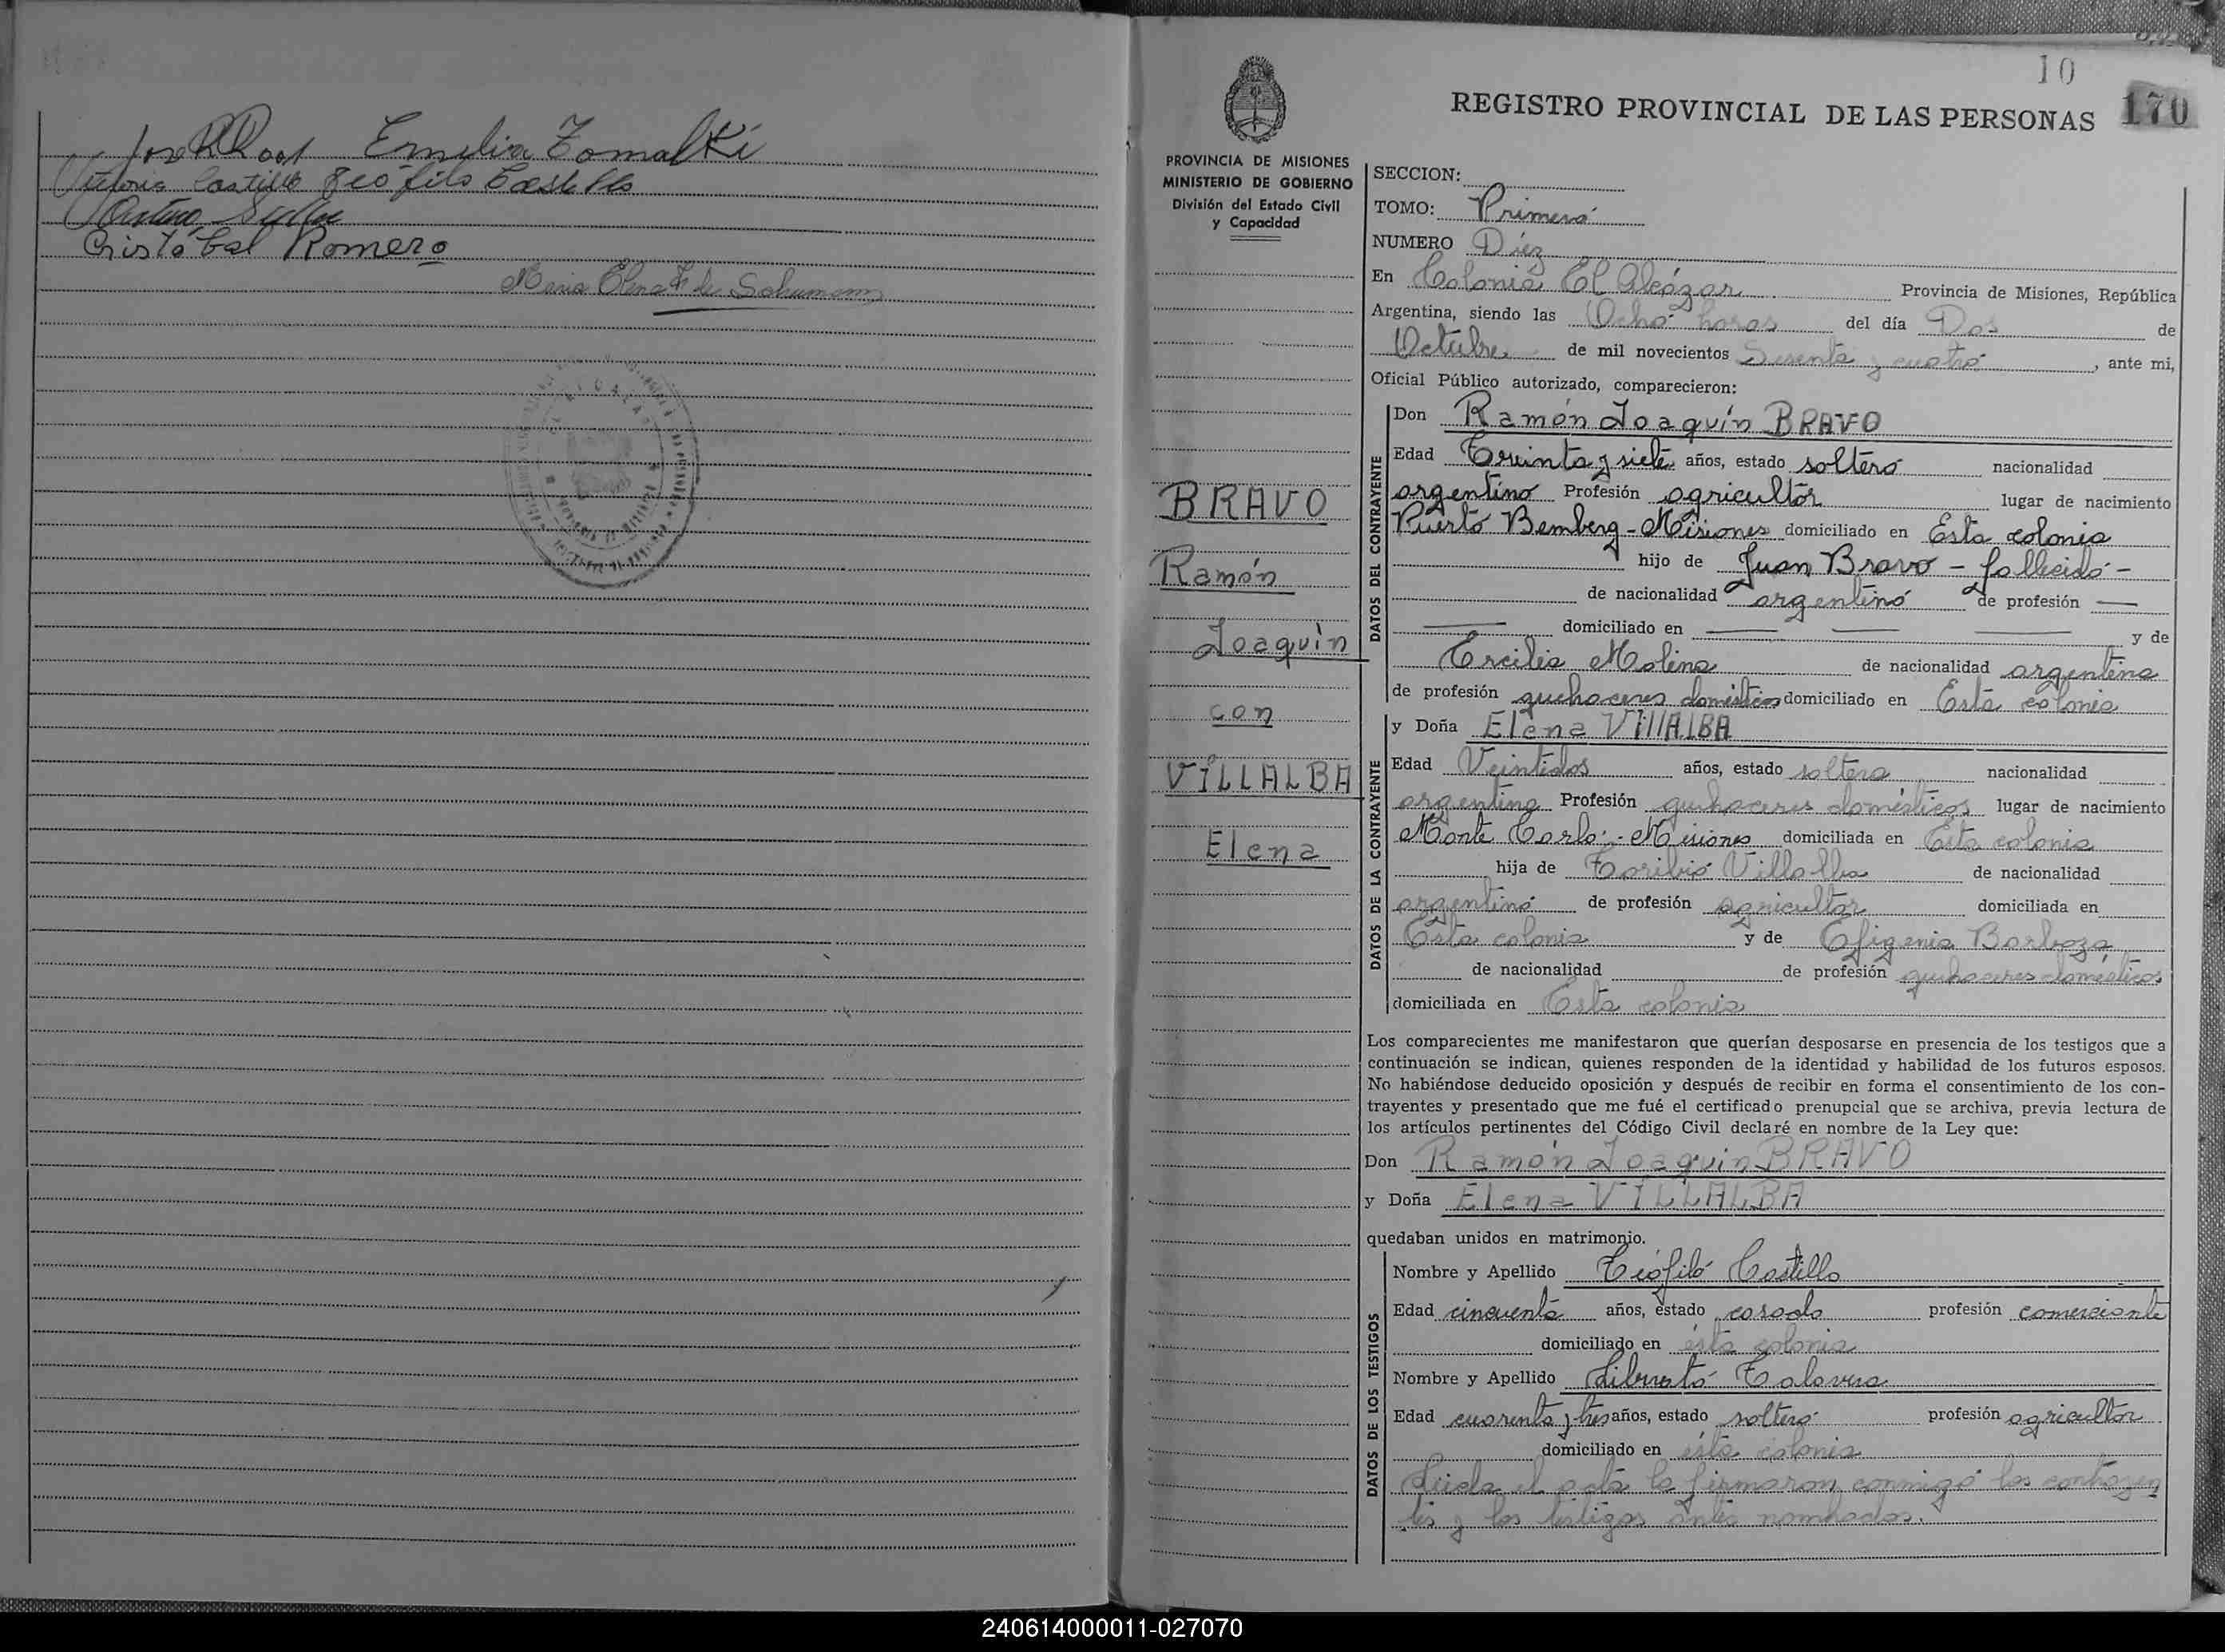 Emilia Tomalki
Victoria Castillo Teófilo Castillo
Cristóbal Romero
Maria Elena F. de Schumann
10
REGISTRO PROVINCIAL DE LAS PERSONAS 170
PROVINCIA DE MISIONES
MINISTERIO DE GOBIERNO
División del Estado Civil
y Capacidad
BRAVO
Ramón
Joaquín
con
VILLALBA
Elena
SECCION:
TOMO: Primero
NUMERO Diez
En Colonia El Alcázar Provincia de Misiones, República
Argentina, siendo las Ocho horas del día Dos de
Octubre de mil novecientos Sesenta y cuatro, ante mi,
Oficial Público autorizado, comparecieron:
DATOS DEL CONTRAYENTE
Don Ramón Joaquín BRAVO
Edad Treinta y siete años, estado soltero nacionalidad
argentino Profesión agricultor lugar de nacimiento
Puerto Bemberg - Misiones domiciliado en Esta colonia
hijo de Juan Bravo - fallecido -
de nacionalidad argentino de profesión —
— domiciliado en — — — y de
Ercilia Molina de nacionalidad argentina
de profesión quehaceres domésticos domiciliado en Esta colonia
DATOS DE LA CONTRAYENTE
y Doña Elena VIllALBA
Edad Veintidos años, estado soltera nacionalidad
argentina Profesión quehaceres domésticos lugar de nacimiento
Monte Carlo - Misiones domiciliada en Esta colonia
hija de Toribio Villalba de nacionalidad
argentino de profesión agricultor domiciliada en
Esta colonia y de Efigenia Barboza
de nacionalidad de profesión quehaceres domésticos
domiciliada en Esta colonia
Los comparecientes me manifestaron que querían desposarse en presencia de los testigos que a
continuación se indican, quienes responden de la identidad y habilidad de los futuros esposos.
No habiéndose deducido oposición y después de recibir en forma el consentimiento de los con-
trayentes y presentado que me fué el certificado prenupcial que se archiva, previa lectura de
los artículos pertinentes del Código Civil declaré en nombre de la Ley que:
Don Ramón Joaquín BRAVO
y Doña Elena VILLALBA
quedaban unidos en matrimonio.
DATOS DE LOS TESTIGOS
Nombre y Apellido Teófilo Castillo
Edad cincuenta años, estado casado profesión comerciante
domiciliado en ésta colonia
Nombre y Apellido Liberato Talavera
Edad cuarenta y tres años, estado soltero profesión agricultor
domiciliado en ésta colonia
Leída el acta la firmaron conmigo los contrayen
tes y los testigos antes nombrados.
240614000011-027070